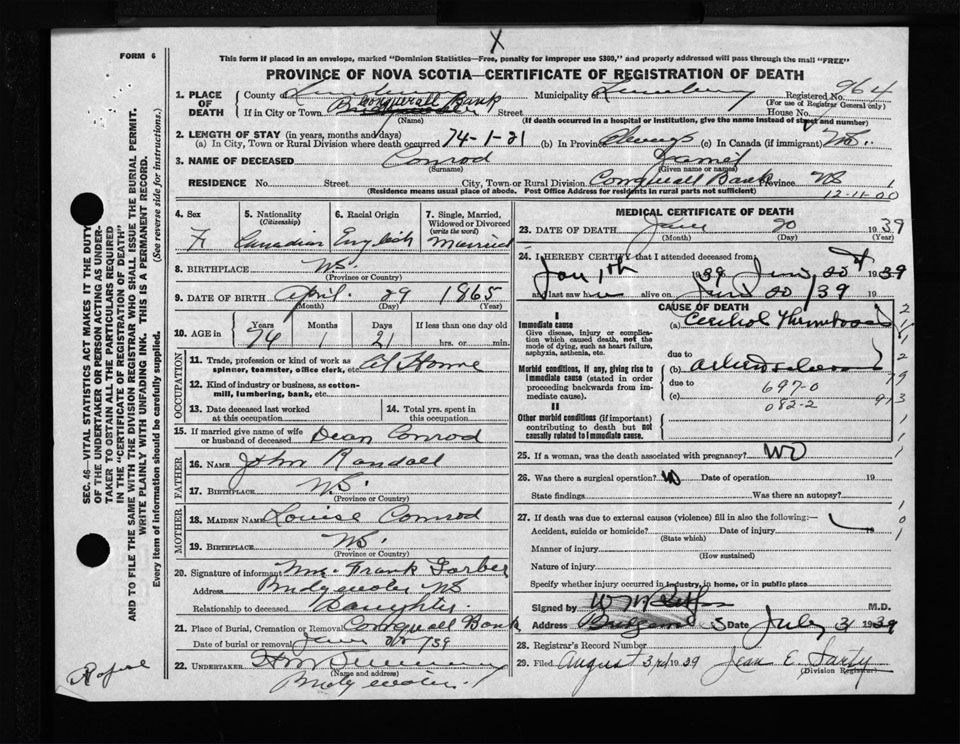 X
FORM 6
This form if placed in an envelope, marked "Dominion Statistics—Free, penalty for improper use $300," and properly addressed will pass through the mail "FREE"
PROVINCE OF NOVA SCOTIA—CERTIFICATE OF REGISTRATION OF DEATH
SEC. 46—VITAL STATISTICS ACT MAKES IT THE DUTY
OF THE UNDERTAKER OR PERSON ACTING AS UNDER-
TAKER TO OBTAIN ALL THE PARTICULARS REQUIRED
IN THE "CERTIFICATE OF REGISTRATION OF DEATH"
AND TO FILE THE SAME WITH THE DIVISION REGISTRAR WHO SHALL ISSUE THE BURIAL PERMIT.
WRITE PLAINLY WITH UNFADING INK. THIS IS A PERMANENT RECORD.
Every item of Information should be carefully supplied. (See reverse side for instructions.)
1. PLACE OF DEATH
County of Lunenburg Municipality of Lunenburg Registered No. 964
(For use of Registrar General only)
If in City or Town Conquerall Bank Street House No.
(Name) (If death occurred in a hospital or institution, give the name instead of street and number)
2. LENGTH OF STAY (in years, months and days)
(a) In City, Town or Rural Division where death occurred 74-1-21 (b) In Province Always (c) In Canada (if immigrant) N.S.
3. NAME OF DECEASED Conrod
(Surname) (Given name or names)
RESIDENCE No. Street City, Town or Rural Division Conquerall Bank Province N.S. 1
(Residence means usual place of abode. Post Office Address for residents in rural parts not sufficient) 12-11-00
4. Sex F
5. Nationality (Citizenship) Canadian
6. Racial Origin English
7. Single, Married, Widowed or Divorced (write the word) Married
8. BIRTHPLACE N.S.
(Province or Country)
9. DATE OF BIRTH April 29 1865
(Month) (Day) (Year)
10. AGE in Years 74 Months 1 Days 21 If less than one day old hrs. or min.
OCCUPATION
11. Trade, profession or kind of work as spinner, teamster, office clerk, etc. At Home
12. Kind of industry or business, as cotton-mill, lumbering, bank, etc.
13. Date deceased last worked at this occupation
14. Total yrs. spent in this occupation
15. If married give name of wife or husband of deceased Dean Conrod
FATHER
16. NAME John Randall
17. BIRTHPLACE N.S.
(Province or Country)
MOTHER
18. MAIDEN NAME Louise Conrod
19. BIRTHPLACE N.S.
(Province or Country)
20. Signature of informant Mrs. Frank Garber
Address Bridgewater NS
Relationship to deceased Daughter
21. Place of Burial, Cremation or Removal Conquerall Bank
Date of burial or removal
22. UNDERTAKER
(Name and address)
Bridgewater
MEDICAL CERTIFICATE OF DEATH
23. DATE OF DEATH June 20 1939
(Month) (Day) (Year)
24. I HEREBY CERTIFY that I attended deceased from
Jan 1st 1939 June 20th 1939
and last saw h alive on June 20/39 19
CAUSE OF DEATH
I
Immediate cause
Give disease, injury or complication which caused death, not the mode of dying, such as heart failure, asphyxia, asthenia, etc.
(a) Cerebral Thrombosis
due to
Morbid conditions, if any, giving rise to immediate cause (stated in order proceeding backwards from immediate cause).
(b)
due to 697-0
(c) 082-2
II
Other morbid conditions (if important) contributing to death but not causally related to immediate cause.
25. If a woman, was the death associated with pregnancy? NO
26. Was there a surgical operation? NO Date of operation 19
State findings Was there an autopsy?
27. If death was due to external causes (violence) fill in also the following:—
Accident, suicide or homicide? Date of injury 19
(State which)
Manner of injury
(How sustained)
Nature of injury
Specify whether injury occurred in industry, in home, or in public place
Signed by M.D.
Address Date July 31 1939
28. Registrar's Record Number
29. Filed August 3rd 1939 Jean E.
(Division Registrar)